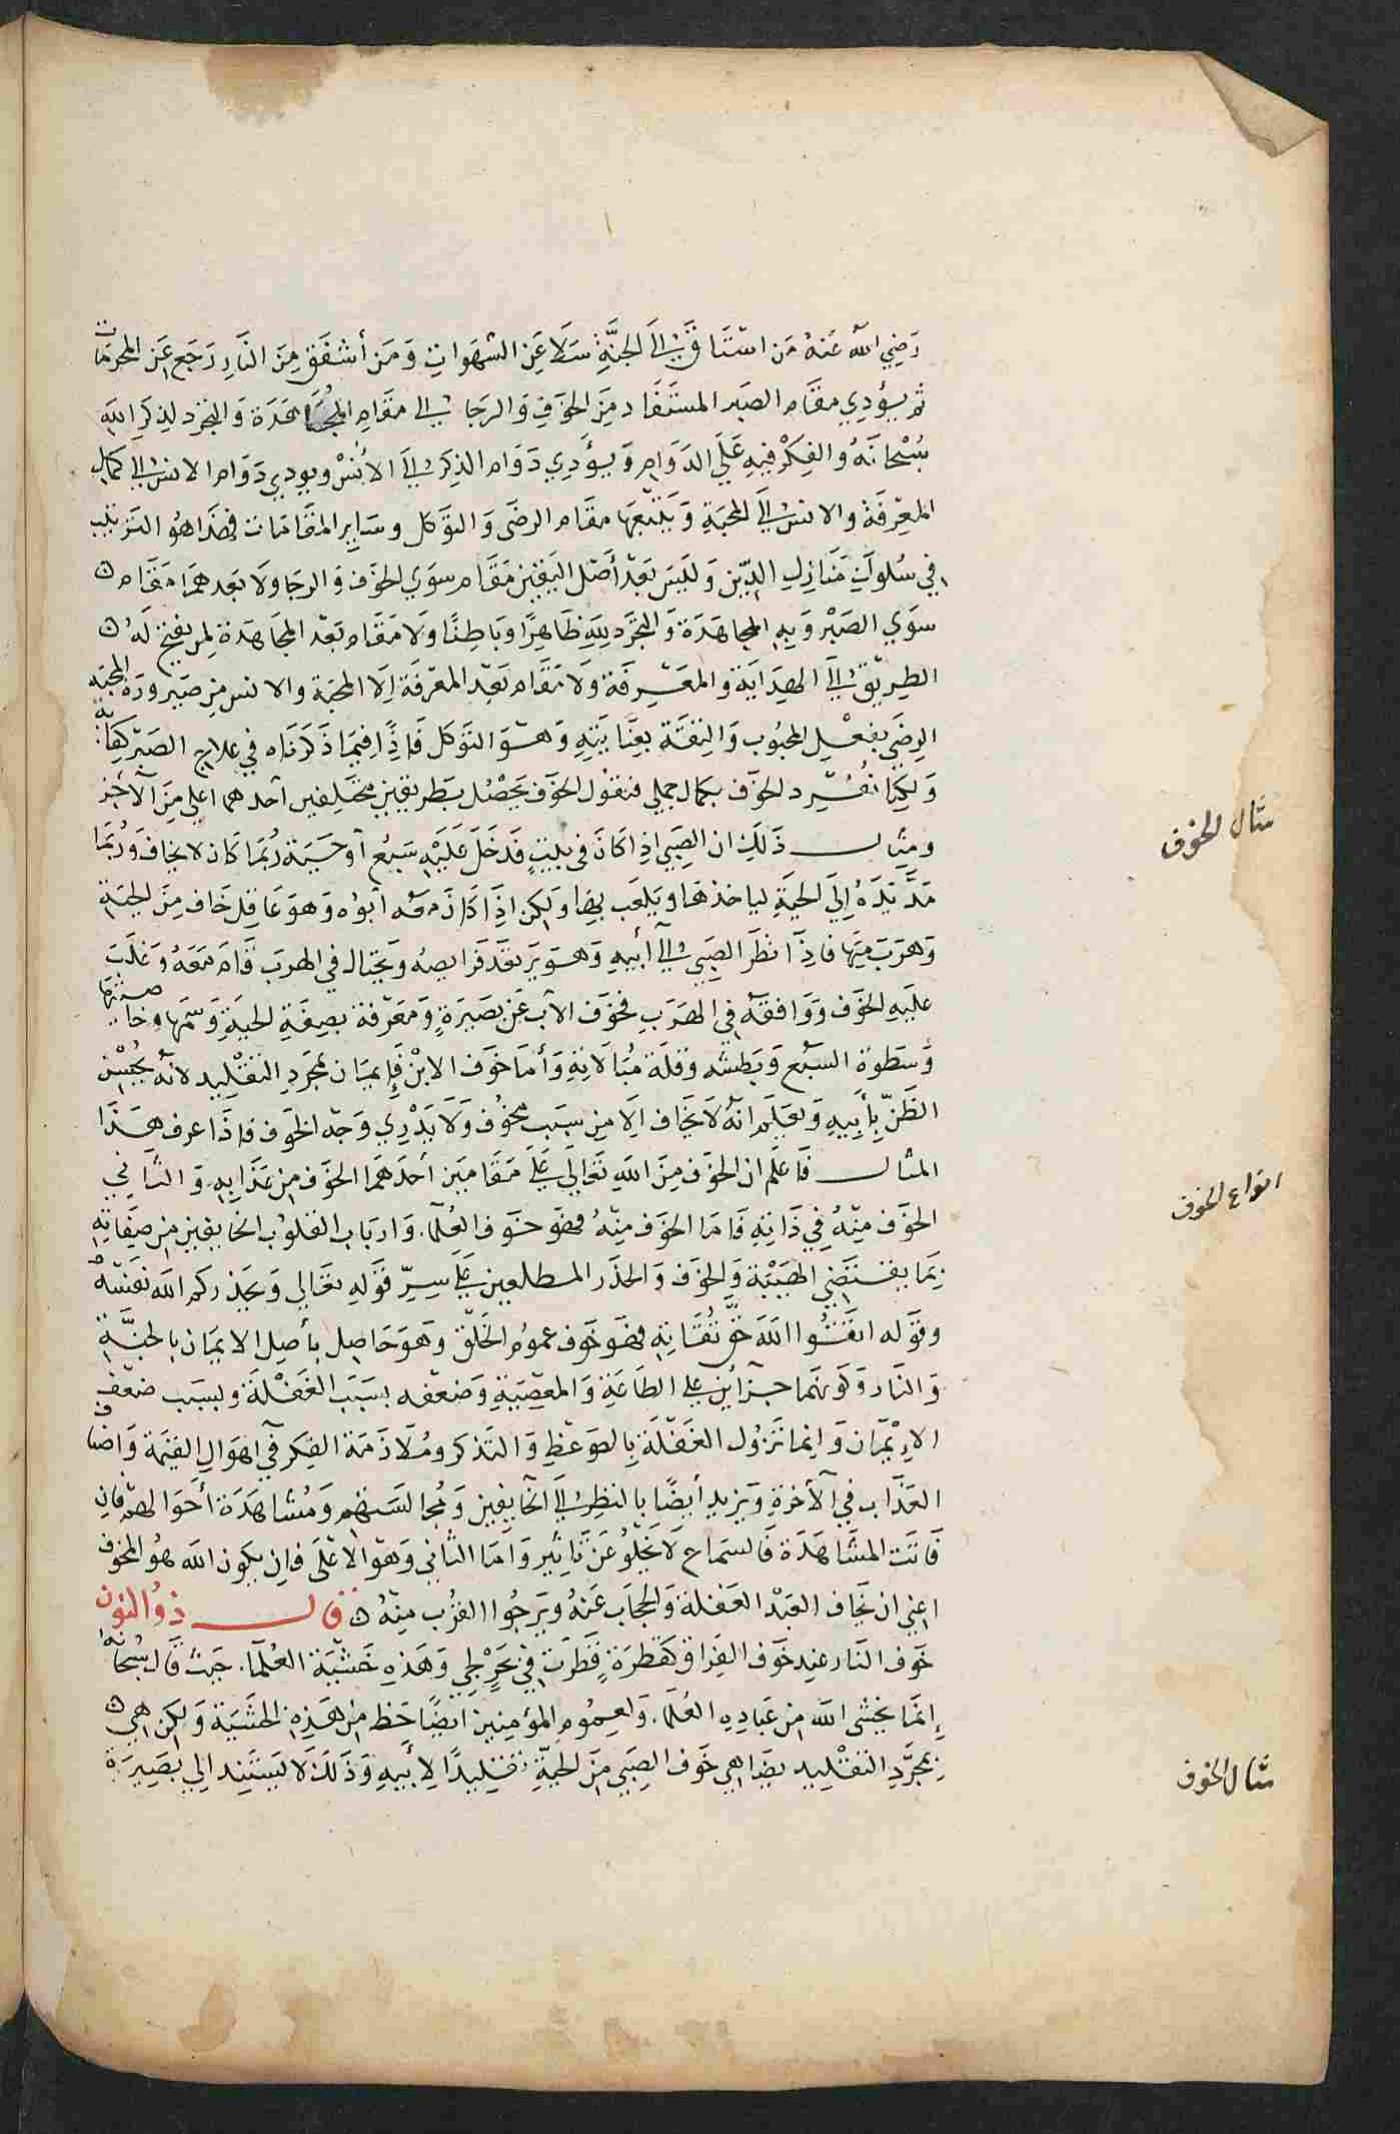 رَضِيَ اللَّه عَنهُ مَن اشتَاقَ إِلَى الجنَّةِ سَلَا عَنِ الشهَواتِ وَمَن أشفَقَ مِنَ النَارِ رَجَع عَن المحرمَات
ثم يؤدِي مقَام الصَبر المستَفَاد مِنَ الخوفِ وَالرجَا إلى مقَامِ المجَاهَدَة وَالتجرد لِذِكرِ اللَّهِ
سُبْحانَهُ وَالفِكرْ فيهِ عَلَى الدَوَامِ وَيؤَدِي دَوَام الذِكرِ إلَى الأنْسْ ويودي دَوَام الانس إلي كمَال
المعِرفَة والانس إلَى المحبَةِ وَيَتبَعهَا مقَام الرضَى وَالتوَكل وسَايِر المقَامَات فهَذا هُو الترتيب
في سُلوكِ مَنَازِلِ الدِّين وَليَس بَعدَ أصْل اليَقين مَقَام سوَي الخوَف وَالرجَا ولَا بَعدهمَا مَقَام ه
سوَي الصَبْر وَبهِ المجاهَدَة وَالتجرَد للَّهِ ظَاهِرًا وبَاطِنًا وَلَا مَقَام بَعْد المجَاهَدَة لمن يفتح لَهُ ه
الطِريْق إلَى الهدَايَة وَالمعَرفَة وَلَا مَقَام بَعْد المعْرفَة اِلا المحبَة والانس ومِن ضَرورَة المحبَه
الرِضَى بفعْل المحبُوب وَالثِقَة بعِنَايَتِهِ وَهوَ التوَكل فَاذًا فيمَا ذَكَرنَاه في علاج الصَبْر كفِايَة
وَلكِنا نُفرِد الخوَف بكلام جملي فنقوُل الخوَف يَحصُل بطَريقين مختَلِفين أحدهمَا اعلي مِنَ الآخَر
ومِثَال ذَلَكَ ان الصَبِي اذِا كَانَ في بَيْتٍ فَدَخَلَ عَلَيْهِ سَبُع أوَ حَيَة رُبمَا كَانَ لا يخافَ وَرُبمَا
مَدَّ يَدَهُ إِلَى الحيَةِ ليا خذهَا وَيلعَب بهِا ولكن اذَا كَانَ مَعَه ابُوه وَهوَ عَاقِل خَافَ مِنَ الحيَة
وَهرَبَ مِنهَا فَاذَا نظَر الصَبِي إلى أبيهِ وَهوَ يرَتعَد فَرايصهُ وَيحتال في الهرب قَامَ مَعَهُ وَغلَبَ
عَلَيهِ الخوَف وَوَافقَه في الهَرَبِ فخوَف الأب عَن بَصِيرَةٍ وَمَعَرفة بصِفَةِ الحيَةِ وَسَمهَا وخَاصيتهَا
وَسَطوَة السَبُع وَبَطشه وقلَة مُبَالَاتِهِ وَأمَا خَوَف الابْن فَإِيمَان بمجَردِ التقْلِيد لانهُ يُحْسِن
الظَنّ بِأَبِيهِ وَيعلَم انَهُ لَا يَخَاف اِلَا مِن سَبَب مخوُف وَلَا يَدْرِي وَجْه الخوَف فاذَا عرف هَذَا
المثال فَاعلَم ان الخوَف مِنَ اللهِ تَعَالَى عَلَى مَقَامَين أحدَهمَا الخوَف مِن عَذَابِهِ وَالثَانِي
الخوَف مِنهُ في ذَاتِهِ فَامَا الخوَف مِنهُ فهُو خَوف العُلمَا. وَارباب القلوُب الخَايفين مِن صِفَاتِهِ
بمَا يقتَضِي الهَيْبَة وَالخوَف وَالحذَر المطلعين عَلَى سِرِّ قَولهِ تعَالي وَيحذركم اللَه نفسَهُ
وقوَله اتقَوُا اللَّه حَقّ تُقَاتهِ فهُو خَوف عموُم الخلق وَهوَ حَاصِل بأصِل الايمَان بالجنَّة
وَالنَار وَكَونهمَا جزَأَين علي الطَاعَةِ وَالمعصِيَةِ وَضعفه بسَبَب الغَفْلَة وبسَبب ضعف
الاِيْمَان وَانما تَزوُل الغَفلَة بِالوَعظِ وَالتَذكر ومُلاَزمَة الفِكر في اهوَالِ القيمَة وَاصنَاف
العَذَاب في الآخرة وَيزيد أيضًا بالنظر إلَى الخَايفين وَمُجالسَتهم وَمُشاهَدَة أحوَالهم فان
فَاتَت المشَاهَدَة فَالسمَاع لَا يَخْلُو عَن تَاثير وَامَا الثاني وَهوَ الاعْلَى فان يكون الله هوُ المخوف
اعني ان يخَاف العَبْد الغَفلة وَالحجَاب عَنهُ وَيرجُوا القرُب مِنهُ ه قال ذوُ النون
خَوَف النَار عِند خوَف الفِراق كقَطرَةٍ قَطَرتْ في بَحَرٍ لجي وَهَذِهِ خَشيَة العُلمَا. حيَث قَال سُبحَانَهُ
إِنمَا يخشى الله مِن عبَادِهِ العُلمَا. وَلعِمُومِ المؤمِنين ايضًا حَظ مِن هَذِه الخَشَيَة وَلكن هي ه
بمجرَّدِ التقْلِيد يضَاهِي خَوف الصِبَي مِنَ الحيَّةِ تقليدًا لِأَبيهِ وَذَلَكَ لَا يَستَنِد إلي بَصِيرَة
مثال الخوف
انواع الخوف
مثال الخوف